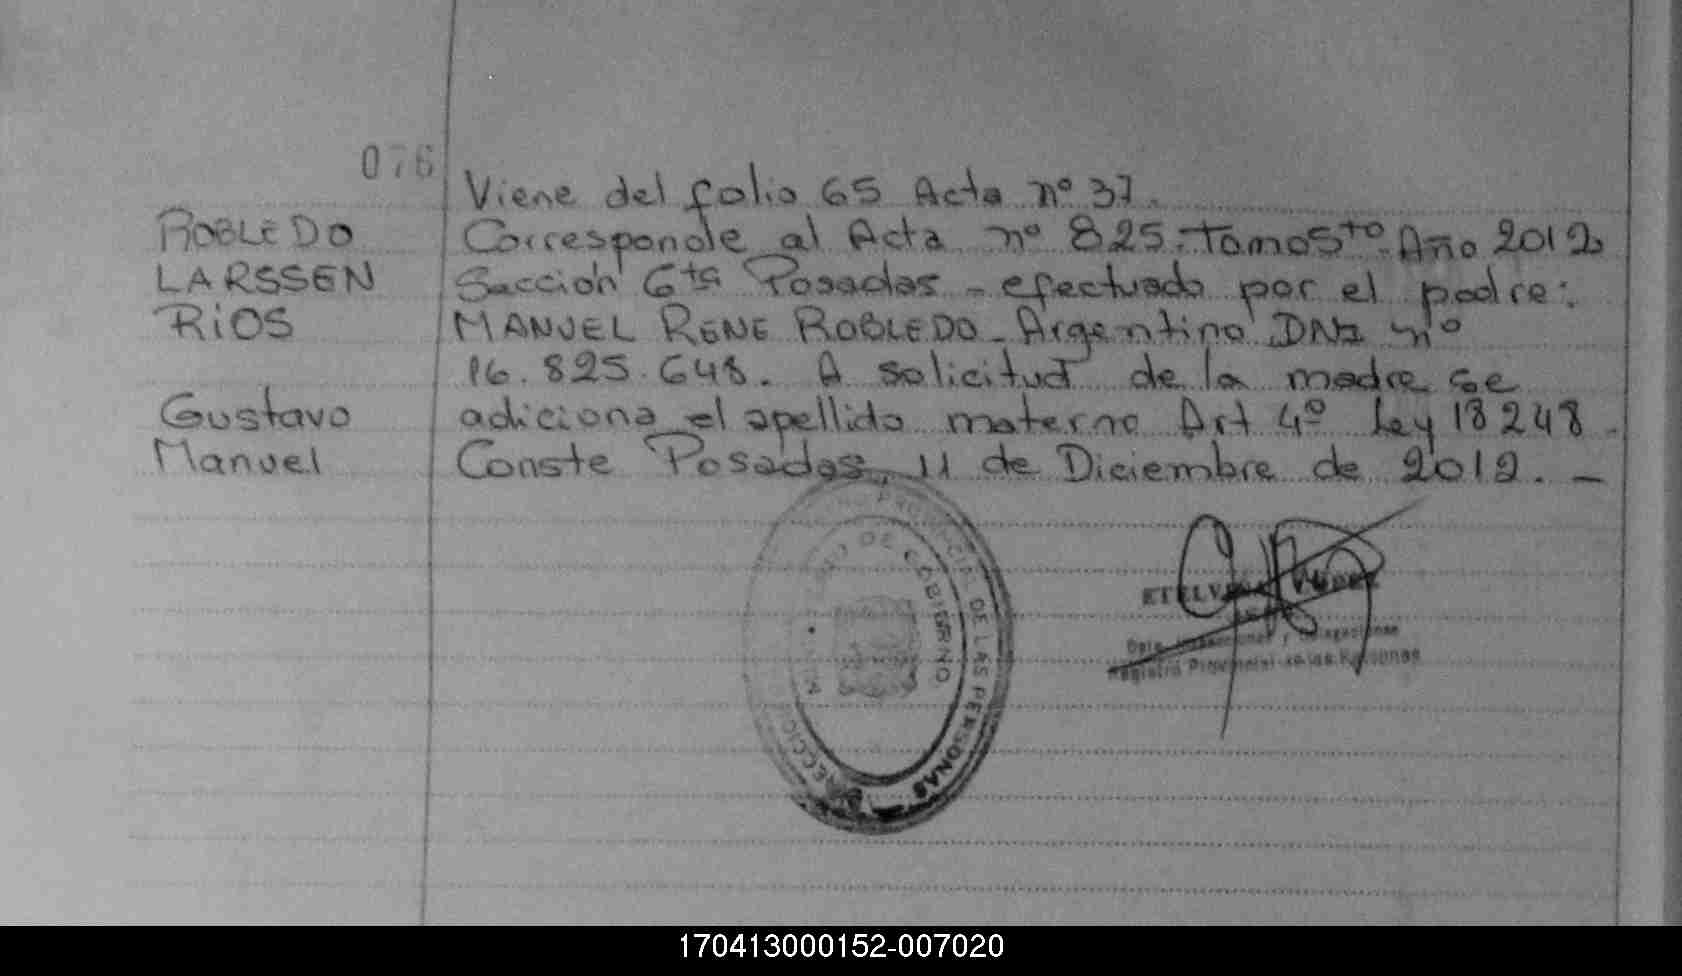 076
Viene del folio 65 Acta nº 37.
ROBLEDO
LARSSEN
RiOS
Gustavo
Manuel
Corresponde al Acta nº 825. Tomo 5to. Año 2012
Sección 6ta Posadas - efectuado por el padre:
MANUEL RENE ROBLEDO - Argentino DNI nº
16.825.648. A solicitud de la madre se
adiciona el apellido materno Art 4º Ley 18248.
Conste Posadas, 11 de Diciembre de 2012. -
PROVINCIAL DE LAS PERSONAS
DE GOBIERNO
Registro Provincial de las Personas
170413000152-007020